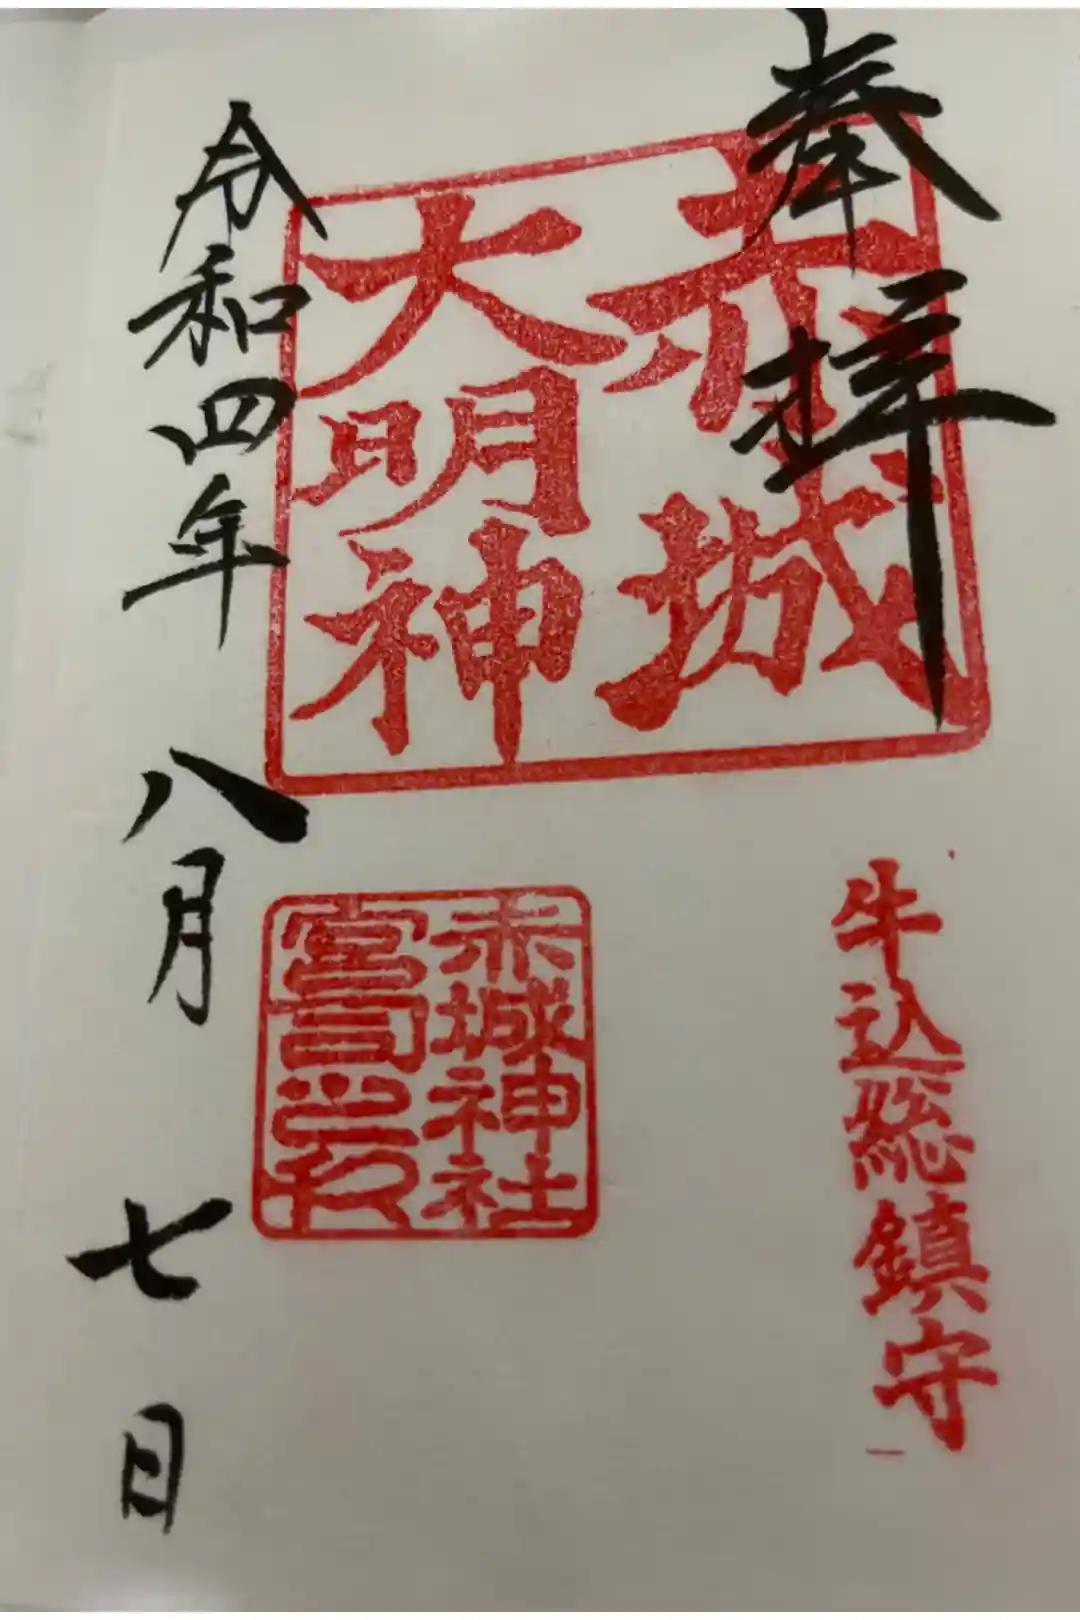 奉拝
赤城
大明神
牛込総鎮守
赤城神社
宮司之印
令和四年 八月 七日